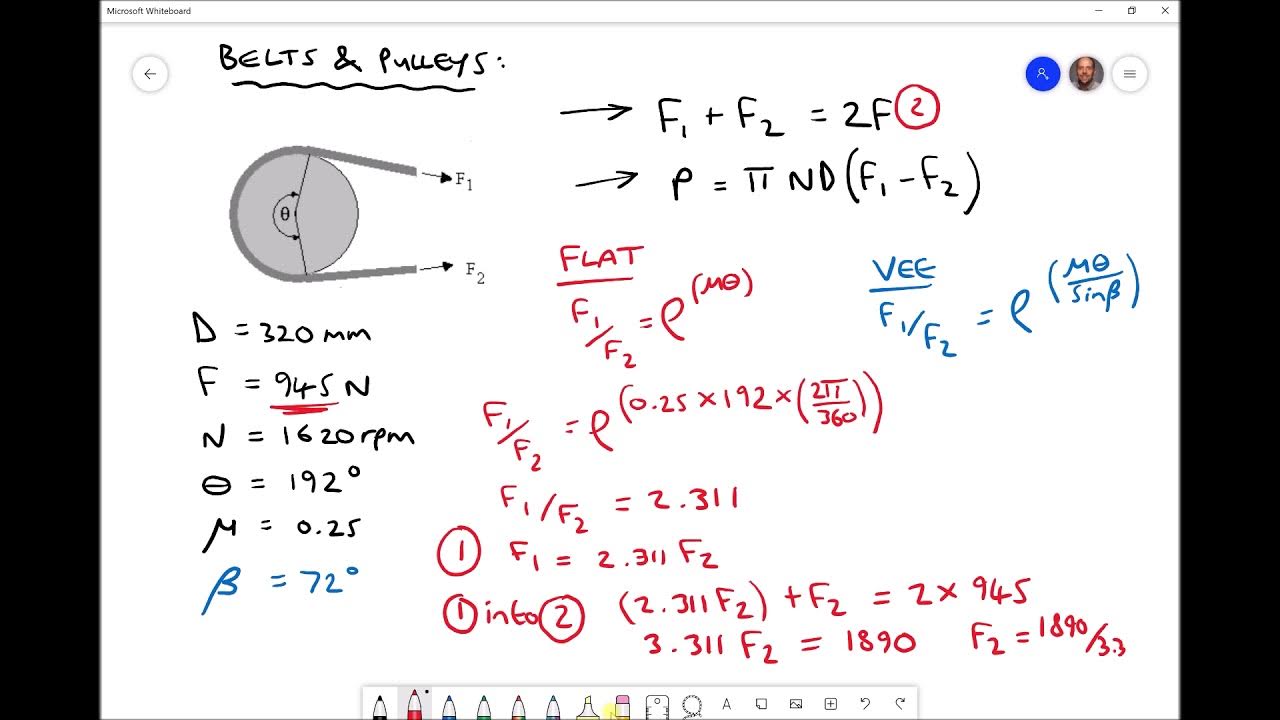 Microsoft Whiteboard
BELTS & PULLEYS:
→ F₁ + F₂ = 2F ②
→ P = π ND(F₁ - F₂)
θ
F₁
F₂
FLAT
F₁/F₂ = e^(μθ)
VEE
F₁/F₂ = e^(μθ/sinβ)
D = 320 mm
F = 945 N
N = 1620 rpm
θ = 192°
μ = 0.25
β = 72°
F₁/F₂ = e^(0.25 × 192 × (2π/360))
F₁/F₂ = 2.311
① F₁ = 2.311 F₂
① into ② (2.311 F₂) + F₂ = 2 × 945
3.311 F₂ = 1890 F₂ = 1890/3.3
A